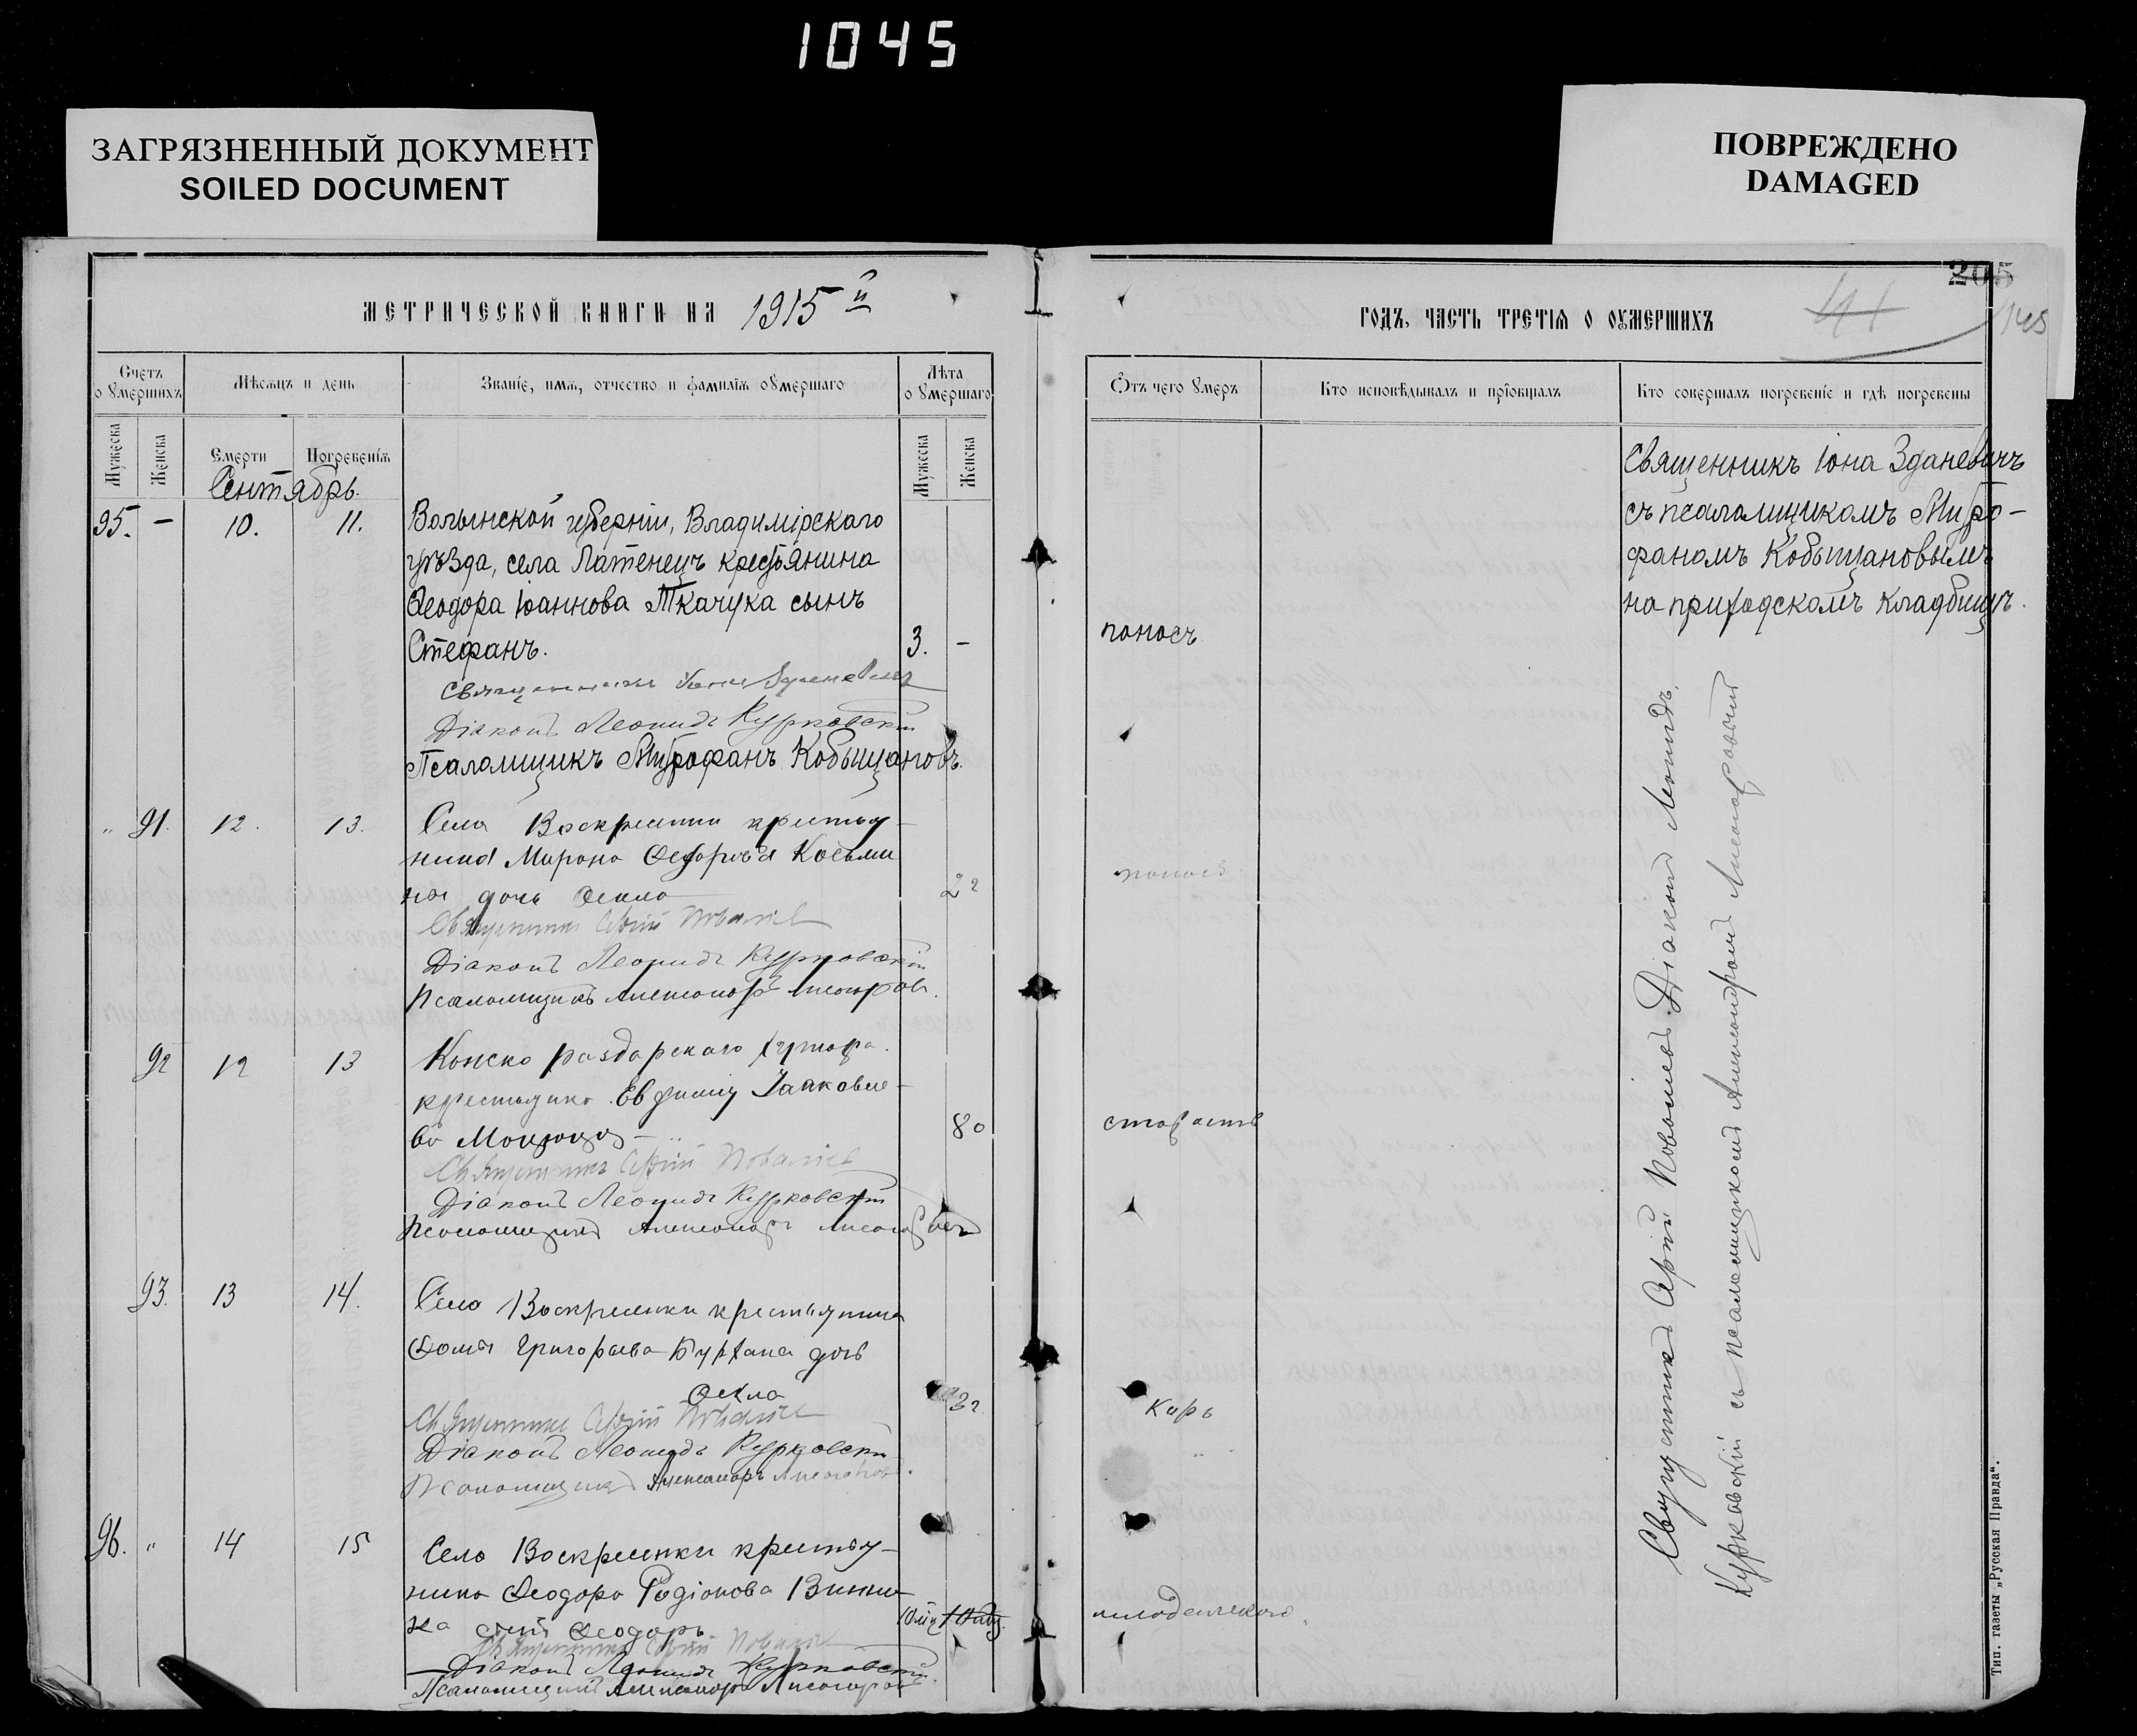 1045
ЗАГРЯЗНЕННЫЙ ДОКУМЕНТ
SOILED DOCUMENT
ПОВРЕЖДЕНО
DAMAGED
МЕТРИЧЕСКОЙ КНИГИ НА 1915 й
Счетъ о умершихъ
Мѣсяцъ и день
Званіе, имя, отчество и фамилія умершаго
Лѣта умершаго
Мужеска
Женска
Смерти
Погребенія
Мужеска
Женска
Сентябрь.
95. – 10. 11. Волынской губерніи, Владимірскаго
уѣзда, села Патенецъ крестьянина
Ѳеодора Іоаннова Ткачука сынъ
Стефанъ. 3. –
Священникъ Іона Зданевичъ
Діаконъ Леонидъ Курковскій
Псаломщикъ Митрофанъ Кобыщановъ.
„ 91. 12. 13. Села Воскресенки крестья-
нина Мирона Ѳедорова Косьми
на дочь Ѳекла 2 г
Священникъ Сергій
Діаконъ Леонидъ Курковскій
Псаломщикъ Александръ
92 12 13 Конско раздорскаго хутора
крестьянка Евфимія Іаковле-
ва 80
Священникъ Сергій
Діаконъ Леонидъ Курковскій
Псаломщикъ Александръ
93. 13 14. Села Воскресенки крестьянина
Ѳомы Григорьева дочь
Ѳекла 3 г
Священникъ Сергій
Діаконъ Леонидъ Курковскій
Псаломщикъ Александръ
96. „ 14 15 Села Воскресенки крестья-
нина Ѳеодора Родіонова
ка сынъ Ѳеодоръ
Священникъ Сергій
Діаконъ Леонидъ Курковскій
Псаломщикъ Александръ
205
41
145
ГОДЪ, ЧАСТЬ ТРЕТІЯ О УМЕРШИХЪ
Отъ чего умеръ
Кто исповѣдывалъ и пріобщалъ
Кто совершалъ погребеніе и гдѣ погребены
Священникъ Іона Зданевичъ
съ псаломщикомъ Митро-
фаномъ Кобыщановымъ
на приходскомъ кладбищѣ.
поносъ
поносъ
старость
Корь
младенческаго
Священникъ Сергій Діаконъ Леонидъ
Курковскій съ псаломщикомъ Александромъ
Тип. газеты „Русская Правда“.